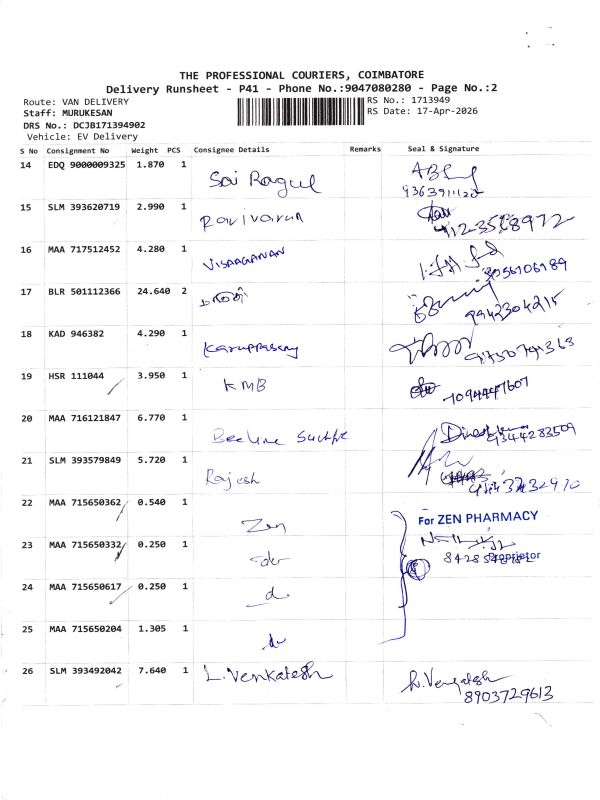 THE PROFESSIONAL COURIERS, COIMBATORE
Delivery Runsheet - P41 - Phone No.:9047080280 - Page No.:2
Route: VAN DELIVERY
RS No.: 1713949
Staff: MURUKESAN
RS Date: 17-Apr-2026
DRS No.: DCJB171394902
Vehicle: EV Delivery
S No Consignment No Weight PCS Consignee Details Remarks Seal & Signature
14 EDQ 9000009325 1.870 1 Sai Ragul
15 SLM 393620719 2.990 1 Ravivarun
16 MAA 717512452 4.280 1 VISAAGANAN
17 BLR 501112366 24.640 2
9942304215
18 KAD 946382 4.290 1 Karuppasamy
19 HSR 111044 3.950 1 KMB
7094447607
20 MAA 716121847 6.770 1 Beeline
9344283509
21 SLM 393579849 5.720 1 Rajesh
22 MAA 715650362 0.540 1 Zen
For ZEN PHARMACY
Proprietor
23 MAA 715650332 0.250 1 do
24 MAA 715650617 0.250 1 do
25 MAA 715650204 1.305 1 do
26 SLM 393492042 7.640 1 L.Venkatesh L.Vengatesh
8903729613